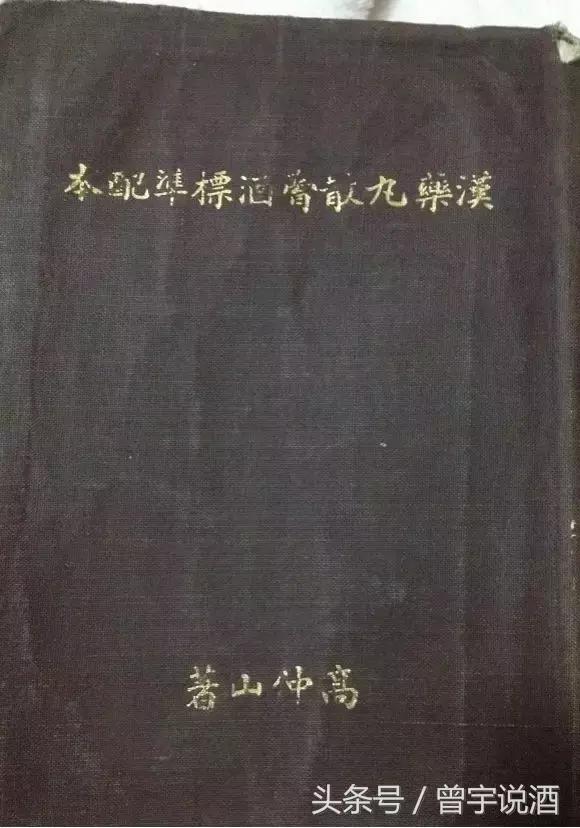 漢藥丸散膏酒標準配本
高仲山著
头条号 / 曾宇说酒